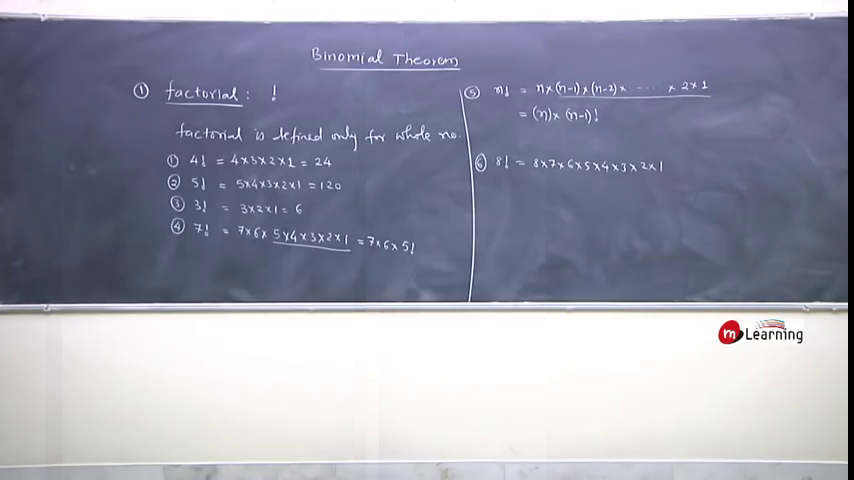 Binomial Theorem
① factorial : !
factorial is defined only for whole no.
① 4! = 4×3×2×1 = 24
② 5! = 5×4×3×2×1 = 120
③ 3! = 3×2×1 = 6
④ 7! = 7×6× 5×4×3×2×1 = 7×6×5!
⑤ n! = n×(n-1)×(n-2)×----- × 2×1
= (n)×(n-1)!
⑥ 8! = 8×7×6×5×4×3×2×1
m Learning